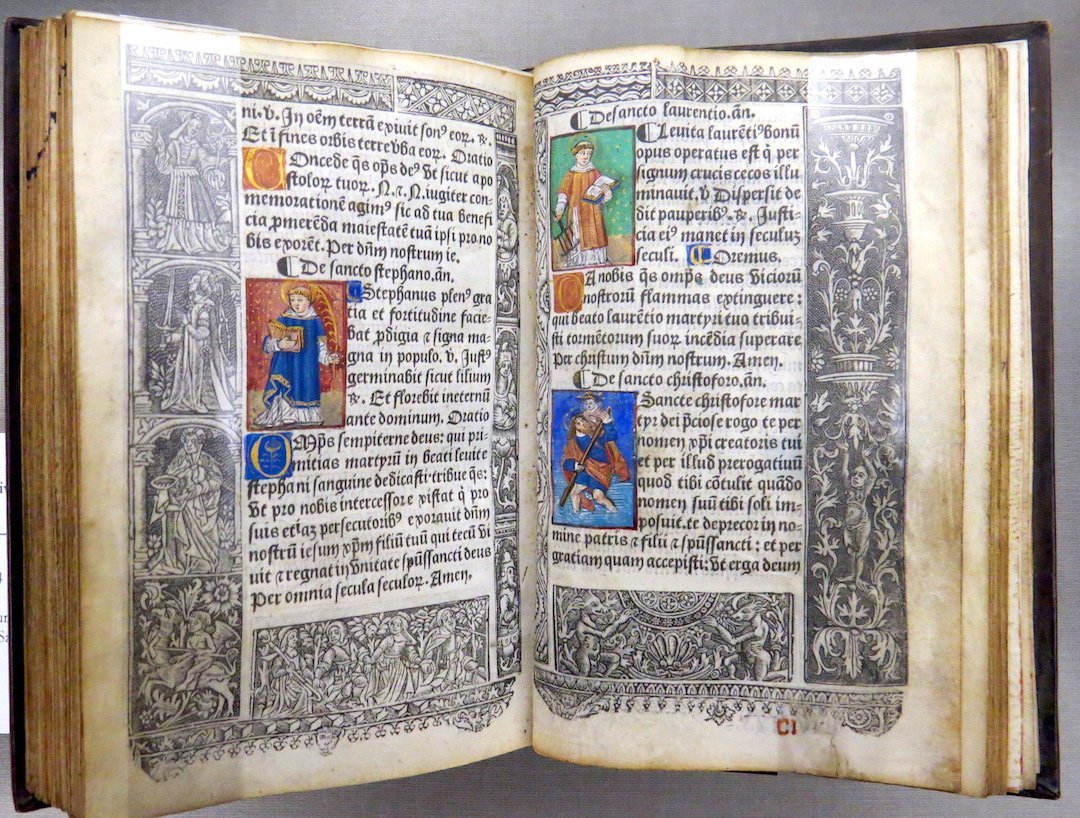 ni. v. In oēm terrā exivit sonꝰ eoꝝ. ℟.
Et ī fines orbis terre vba eoꝝ. Oratio
Oncede q̄s op̄s deꝰ vt sicut apo
stoloꝝ tuoꝝ. N. ⁊ N. iugiter con⸗
memorationē agimꝰ sic ad tua benefi
cia p̱merēda maiestatē tuā ipsi pro no
bis exorēt. Per dn̄m nostrum ie.
De sancto stephano. an̄.
Stephanus plenꝰ gra
tia et fortitudine facie⸗
bat p̱digia ⁊ signa ma⸗
gna in populo. v. Justꝰ
germinabit sicut lilium
℟. Et florebit in eternū
ante dominum. Oratio
Mp̄s sempiterne deus: qui pri⸗
mitias martyrū in beati levite
stephani sanguine dedicasti: tribue q̄s:
vt pro nobis intercessor existat q̄ pro
suis etiaz persecutoribꝰ exoravit dn̄m
nostrū iesum xp̄m filiū tuū qui tecū vi
vit ⁊ regnat in vnitate sp̄ussancti deus
Per omnia secula seculoꝝ. Amen.
De sancto laurentio. an̄.
Levita laurētiꝰ bonū
opus operatus est q̄ per
signum crucis cecos illu
minauit. v Dispersit de
dit pauperibꝰ. ℟. Justi⸗
cia eiꝰ manet in seculuz
seculi. Oremus.
A nobis q̄s omp̄s deus viciorū
nostrorū flammas extinguere:
qui beato laurētio martyri tuo tribui⸗
sti tormētorum suoꝝ incēdia superare
Per christum dn̄m nostrum. Amen.
De sancto christoforo. an̄.
Sancte christofore mar
tyr dei p̄ciose rogo te per
nomen xp̄i creatoris tui
et per illud prerogatiuū
quod tibi cōtulit quādo
nomen suū tibi soli im⸗
posuit. te deprecor in no⸗
mine patris ⁊ filii ⁊ sp̄ussancti: et per
gratiam quam accepisti: vt erga deum
CI